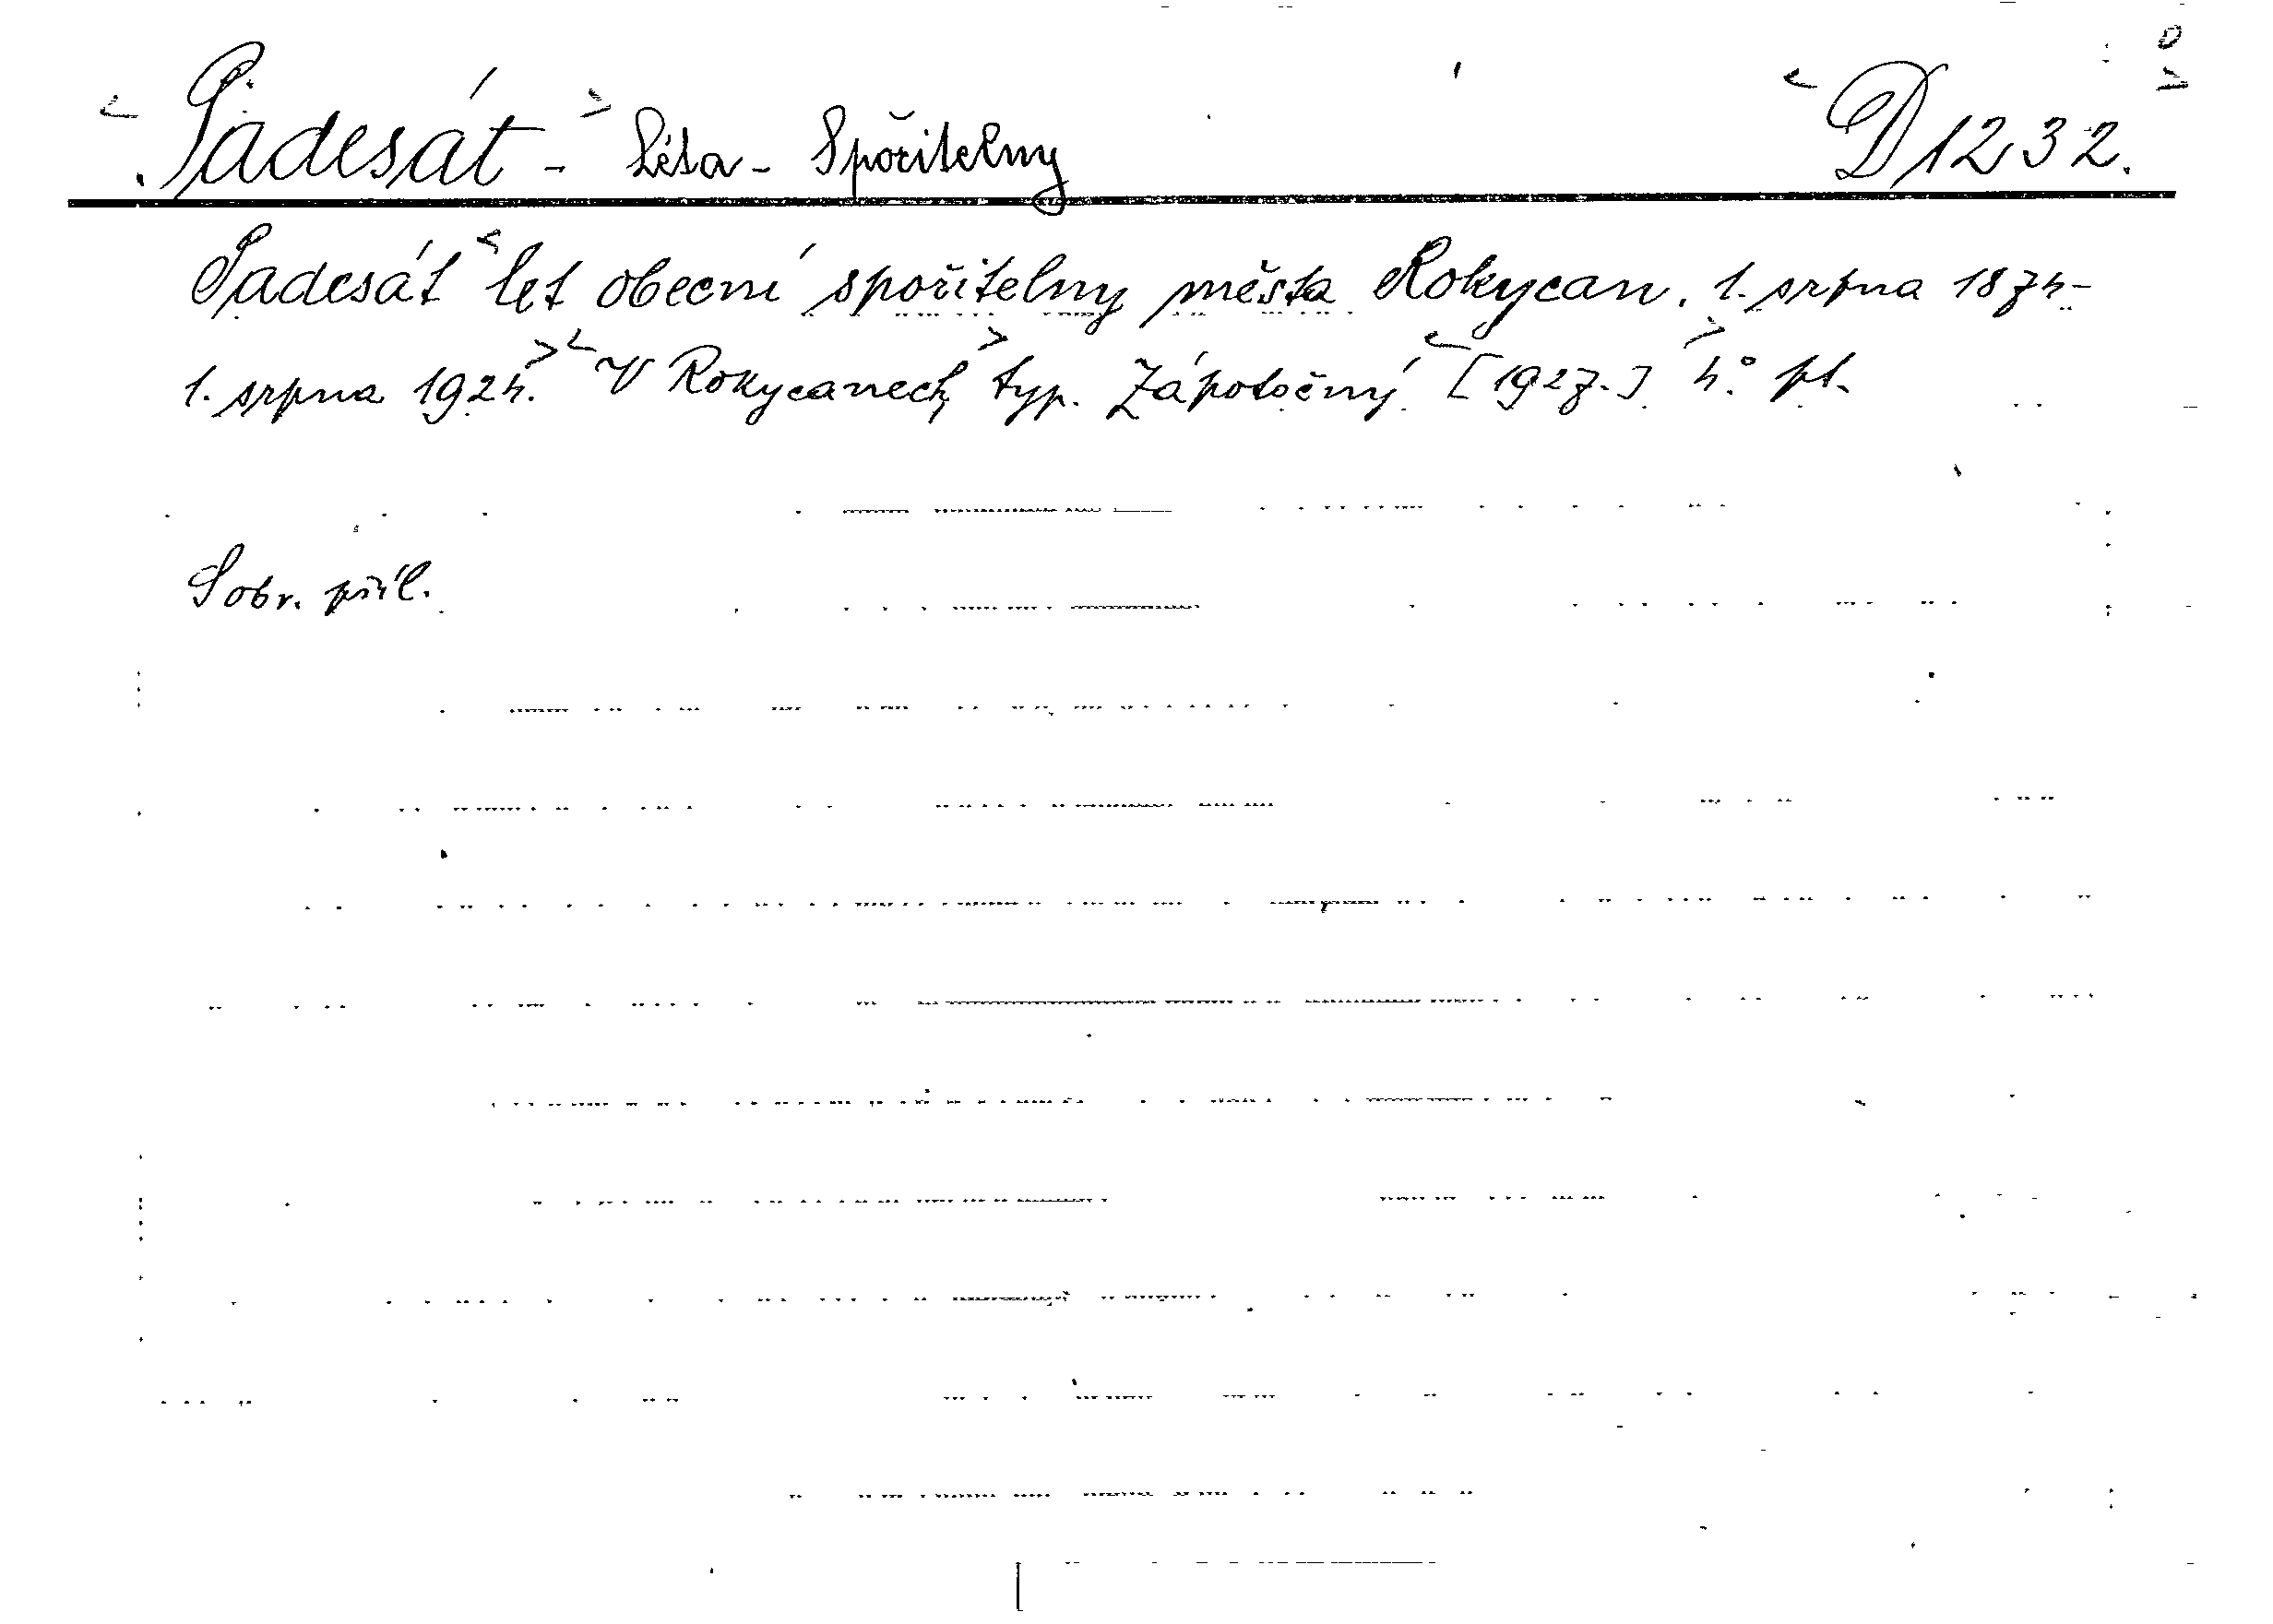 <Padesát-> Léta-Spořitelny <D 1232.>
Padesát <let obecní spořitelny města Rokycan. 1. srpna 1874-
1. srpna 1924.> <V Rokycanech> typ. Zápotočný <[1927.]> 4° pt.
S obr. příl.